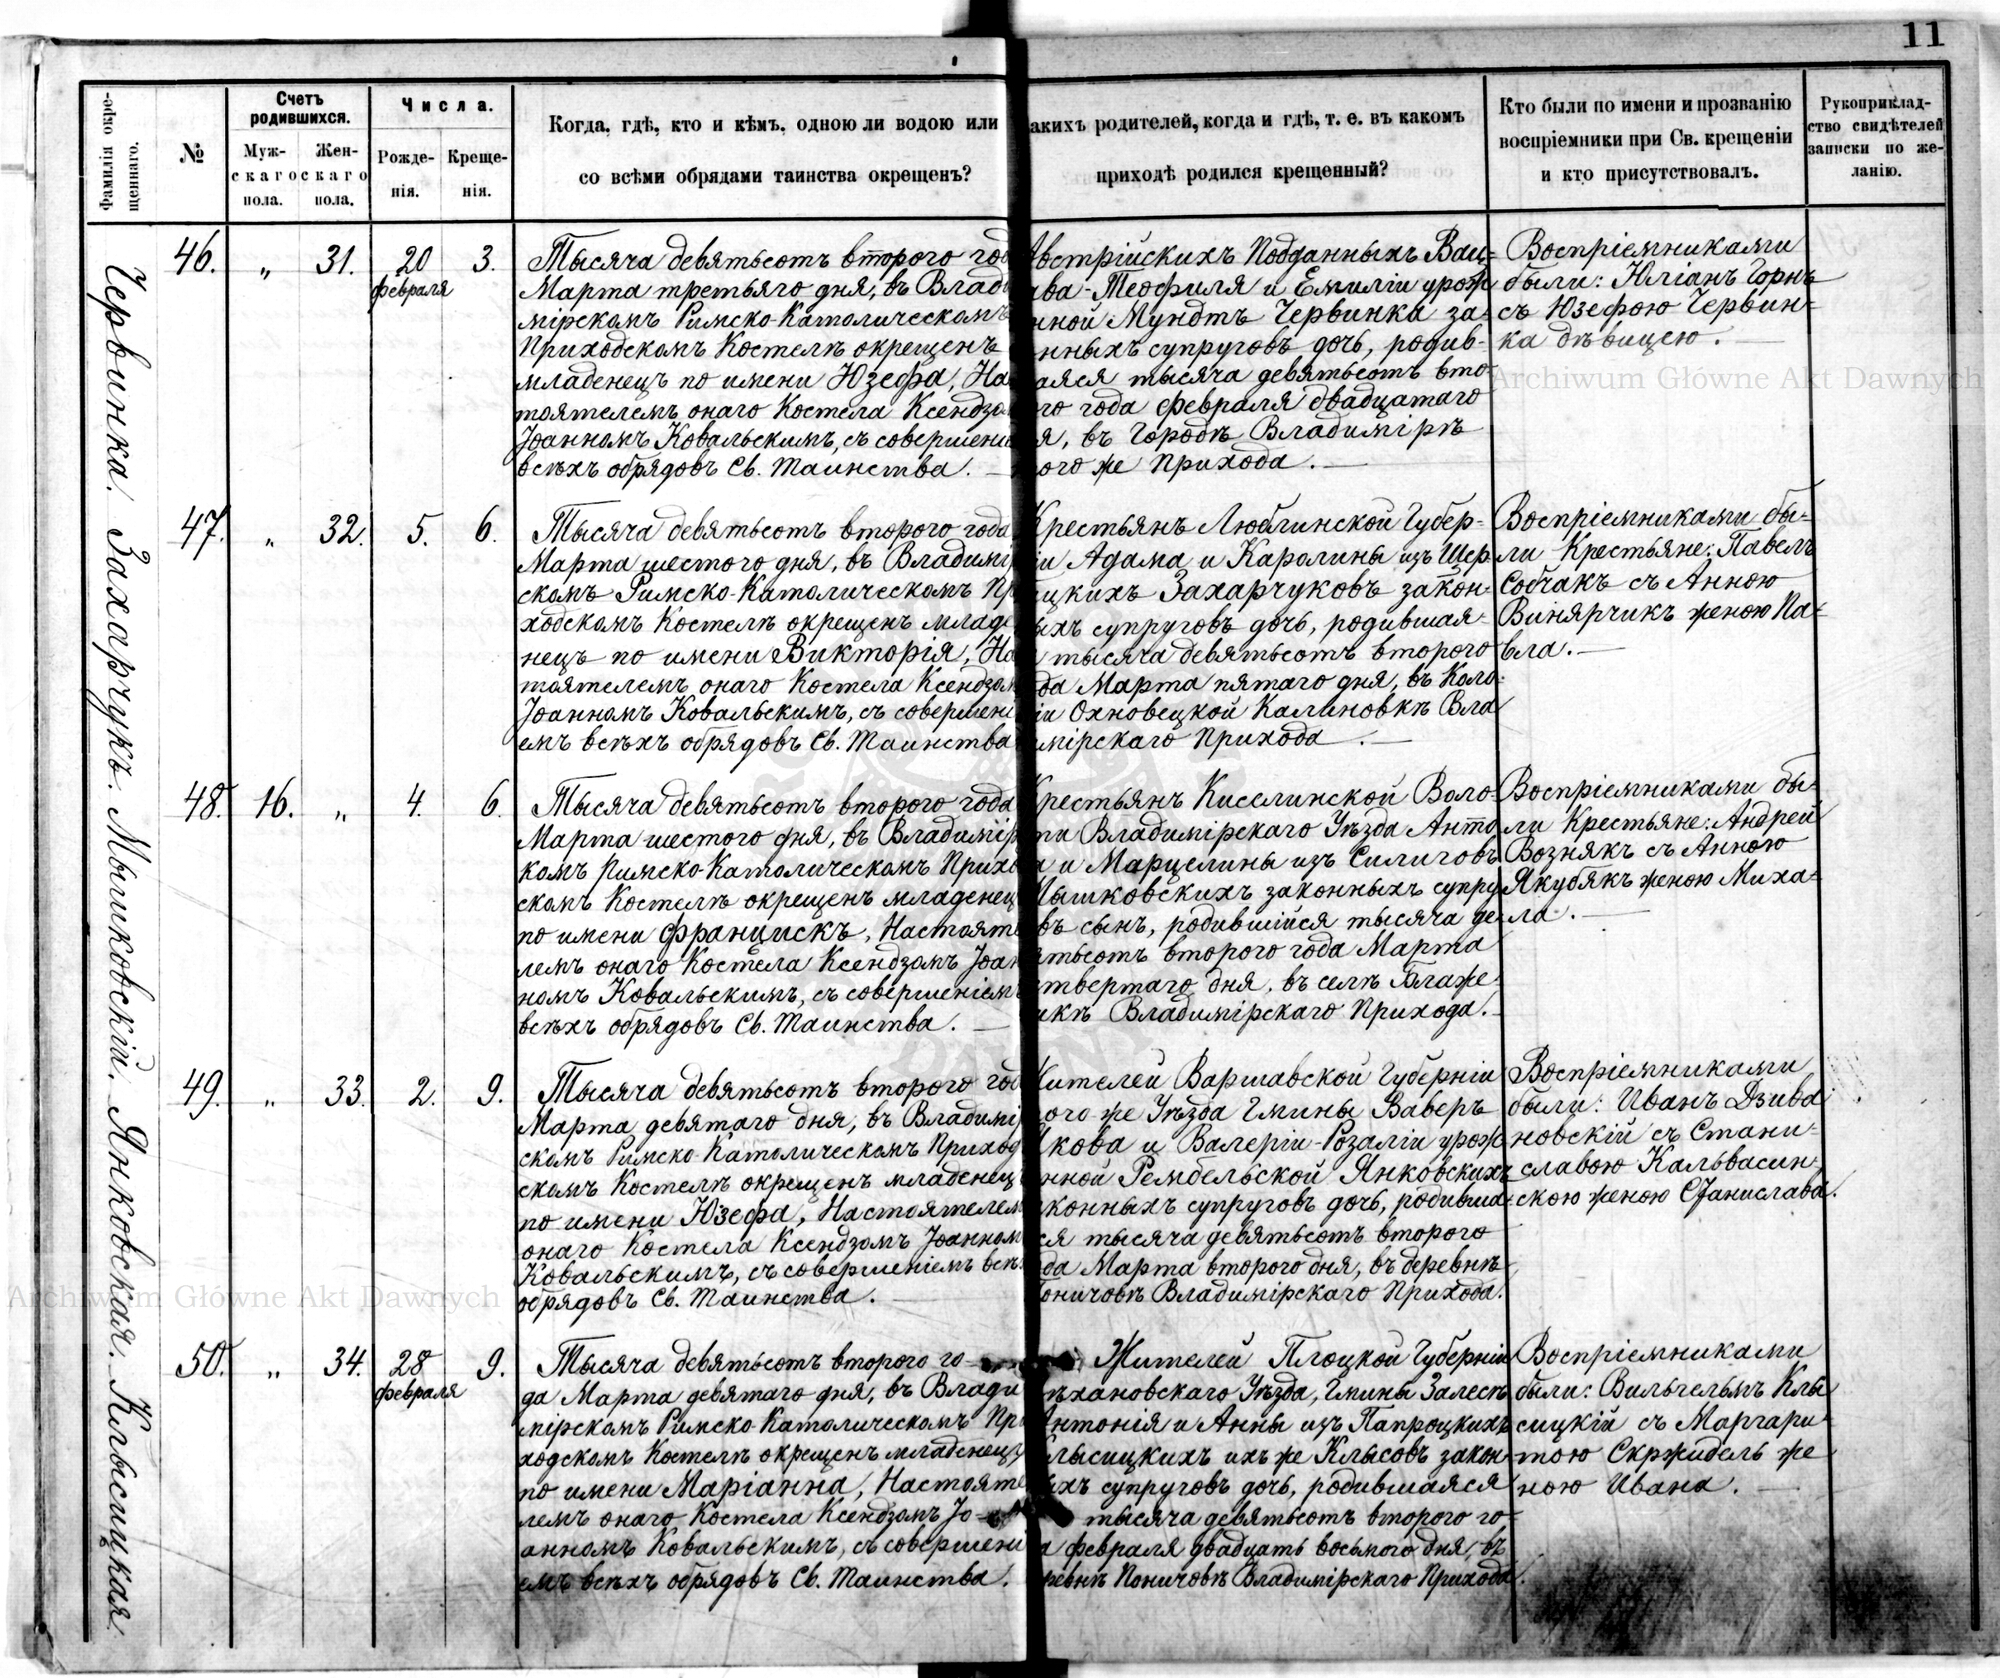 11
Фамилія окре-
щеннаго.
№
Счетъ
родившихся.
Муж-
скаго
пола.
Жен-
скаго
пола.
Числа.
Рожде-
нія.
Креще-
нія.
Когда, гдѣ, кто и кѣмъ, одною ли водою или
со всѣми обрядами таинства окрещенъ?
акихъ родителей, когда и гдѣ, т. е. въ какомъ
приходѣ родился крещенный?
Кто были по имени и прозванію
воспріемники при Св. крещеніи
и кто присутствовалъ.
Рукоприклад-
ство свидѣтелей
записки по же-
ланію.
Червинка. Захарчукъ. Мышковскій. Янковская. Клысицкая.
46. „ 31. 20 февраля 3.
Тысяча девятьсотъ второго год
Марта третьяго дня, въ Влад
мірскомъ Римско-Католическомъ
Приходскомъ Костелѣ окрещенъ
младенецъ по имени Юзефа, На
тоятелемъ онаго Костела Ксендзо
Іоанномъ Ковальскимъ, съ совершені
всѣхъ обрядовъ Св. Таинства. —
Австрійскихъ Подданныхъ Вац-
ава-Теофиля и Емиліи урож
нной Мундтъ Червинка за-
нныхъ супруговъ дочь, родив-
аяся тысяча девятьсотъ вто-
го года февраля двадцатаго
я, въ Городѣ Владимірѣ
того же Прихода. —
Воспріемниками
были: Юліанъ Горнъ
съ Юзефою Червин-
ка дѣвицею. —
47. „ 32. 5. 6.
Тысяча девятьсотъ второго года
Марта шестого дня, въ Владимі
скомъ Римско-Католическомъ Пр
ходскомъ Костелѣ окрещенъ младе
нецъ по имени Викторія, На
тоятелемъ онаго Костела Ксендзом
Іоанномъ Ковальскимъ, съ совершені
емъ всѣхъ обрядовъ Св. Таинства
Крестьянъ Люблинской Губер-
іи Адама и Каролины изъ Щер
цкихъ Захарчуковъ закон-
ыхъ супруговъ дочь, родившая-
тысяча девятьсотъ второго
да Марта пятаго дня, въ Коло-
іи Охновецкой Калиновкѣ Вла
мірскаго Прихода. —
Воспріемниками бы-
ли Крестьяне: Павелъ
Собчакъ съ Анною
Винярчикъ женою Па-
вла. —
48. 16. „ 4. 6.
Тысяча девятьсотъ второго года
Марта шестого дня, въ Владимір
комъ Римско-Католическомъ Прихо
скомъ Костелѣ окрещенъ младенец
по имени Францискъ, Настояте
лемъ онаго Костела Ксендзомъ Іоан
номъ Ковальскимъ, съ совершеніем
всѣхъ обрядовъ Св. Таинства. —
Крестьянъ Киселинской Воло-
ти Владимірскаго Уѣзда Анто
а и Марцелины изъ Силиговъ
Мышковскихъ законныхъ супру
въ сынъ, родившійся тысяча де-
ятьсотъ второго года Марта
твертаго дня, въ селѣ Блаже-
икѣ Владимірскаго Прихода. —
Воспріемниками бы-
ли Крестьяне: Андрей
Вознякъ съ Анною
Якубякъ женою Миха-
ла. —
49. „ 33. 2. 9.
Тысяча девятьсотъ второго год
Марта девятаго дня, въ Владимі
скомъ Римско-Католическомъ Приход
скомъ Костелѣ окрещенъ младенец
по имени Юзефа, Настоятелем
онаго Костела Ксендзомъ Іоанном
Ковальскимъ, съ совершеніемъ всѣх
обрядовъ Св. Таинства. —
Жителей Варшавской Губерніи
того же Уѣзда Гмины Ваверъ
Якова и Валеріи-Розаліи урож
нной Рембельской Янковскихъ
конныхъ супруговъ дочь, родивша-
ся тысяча девятьсотъ второго
да Марта второго дня, въ деревнѣ
Поничовѣ Владимірскаго Прихода.
Воспріемниками
были: Иванъ Дзива
новскій съ Стани-
славою Кальвасин-
скою женою Станислава.
50. „ 34. 28 февраля 9.
Тысяча девятьсотъ второго го-
да Марта девятаго дня, въ Влади
мірскомъ Римско-Католическомъ При
ходскомъ Костелѣ окрещенъ младенецъ
по имени Маріанна, Настояте
лемъ онаго Костела Ксендзомъ Іо-
анномъ Ковальскимъ, съ совершені
емъ всѣхъ обрядовъ Св. Таинства.
Жителей Плоцкой Губерніи
ѣхановскаго Уѣзда, Гмины Залесѣ
Антонія и Анны изъ Папроцкихъ
Клысицкихъ ихъ же Клысовъ закон-
ыхъ супруговъ дочь, родившаяся
тысяча девятьсотъ второго го-
а февраля двадцать восьмого дня, въ
ревнѣ Поничовѣ Владимірскаго Прихода.
Воспріемниками
были: Вильгельмъ Клы
сицкій съ Маргари-
тою Скржидель же
ною Ивана. —
Archiwum Główne Akt Dawnych
Archiwum Główne Akt Dawnych